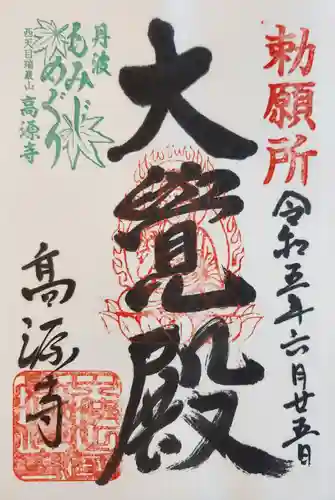 勅願所
令和五年六月廿五日
大覺殿
丹波
もみじ
めぐり
西天目瑞巌山
高源寺
高源寺